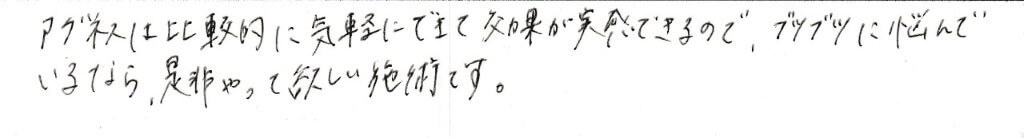 アグネスは比較的に気軽にできて効果が実感できるので、ブツブツに悩んで
いるなら、是非やって欲しい施術です。